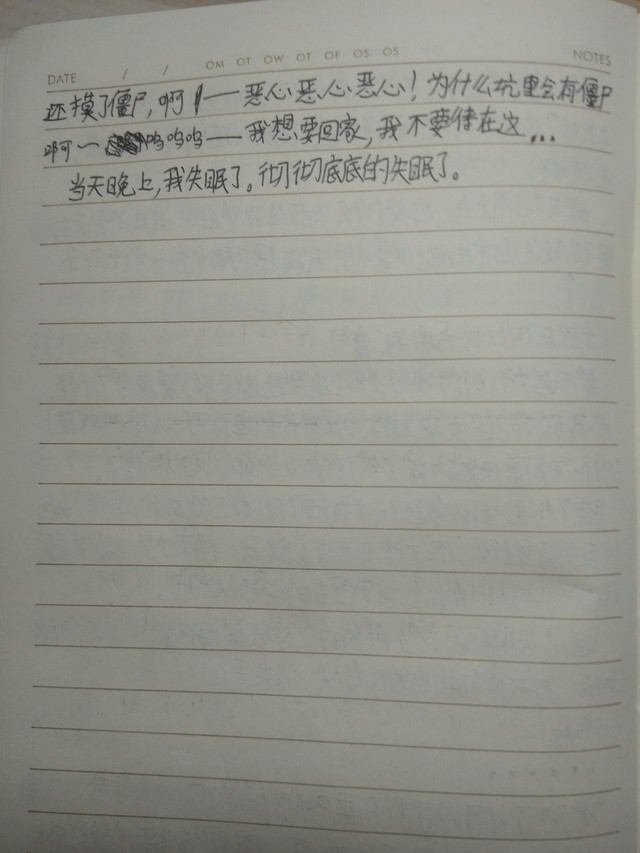 DATE / / OM OT OW OT OF OS OS NOTES
还摸了僵尸,啊——恶心恶心恶心!为什么坑里会有僵尸
啊—呜呜呜——我想要回家,我不要待在这...
当天晚上,我失眠了。彻彻底底的失眠了。